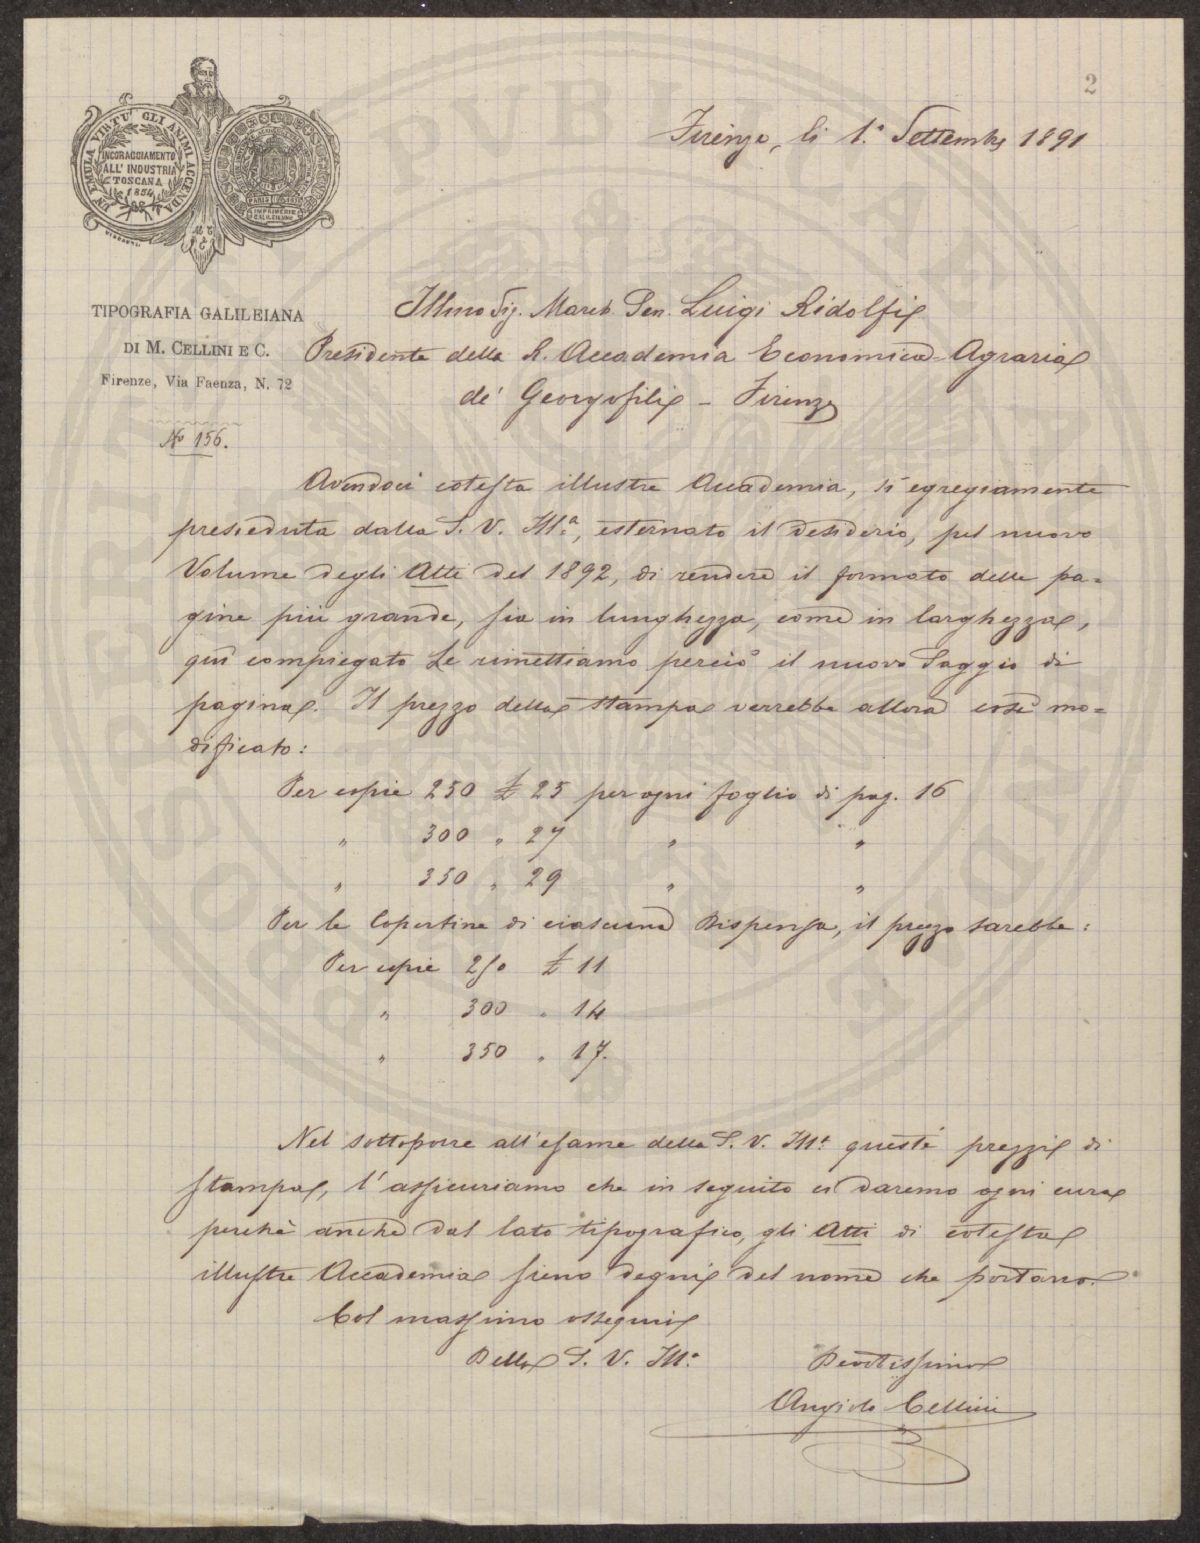 2
Firenze, li 1.° Settembre 1891
UN' EMULA VIRTU' GLI ANIMI ACCENDA
INCORAGGIAMENTO
ALL' INDUSTRIA
TOSCANA
1854
PARIS
IMPRIMERIE
GALILEIANA
TIPOGRAFIA GALILEIANA
DI M. CELLINI E C.
Firenze, Via Faenza, N. 72
No 156.
Illmo Sig. March. Sen. Luigi Ridolfi
Presidente della R. Accademia Economico-Agraria
de' Georgofili - Firenze
Avendoci cotesta illustre Accademia, sì egregiamente
presieduta dalla S. V. Ill.a, esternato il desiderio, pel nuovo
Volume degli Atti del 1892, di rendere il formato delle pa=
gine più grande, sia in lunghezza, come in larghezza,
qui compiegato Le rimettiamo perciò il nuovo Saggio di
pagina. Il prezzo della stampa verrebbe allora così mo=
dificato:
Per copie 250 £ 25 per ogni foglio di pag. 16
" 300 " 27 " "
" 350 " 29 " "
Per le Copertine di ciascuna Dispensa, il prezzo sarebbe:
Per copie 250 £ 11
" 300 " 14
" 350 " 17.
Nel sottoporre all'esame della S. V. Ill.a questi prezzi di
stampa, l'assicuriamo che in seguito ci daremo ogni cura
perchè anche dal lato tipografico, gli Atti di cotesta
illustre Accademia sieno degni del nome che portano.
Col massimo ossequi
Della S. V. Ill.a
Devotissimo
Angiolo Cellini